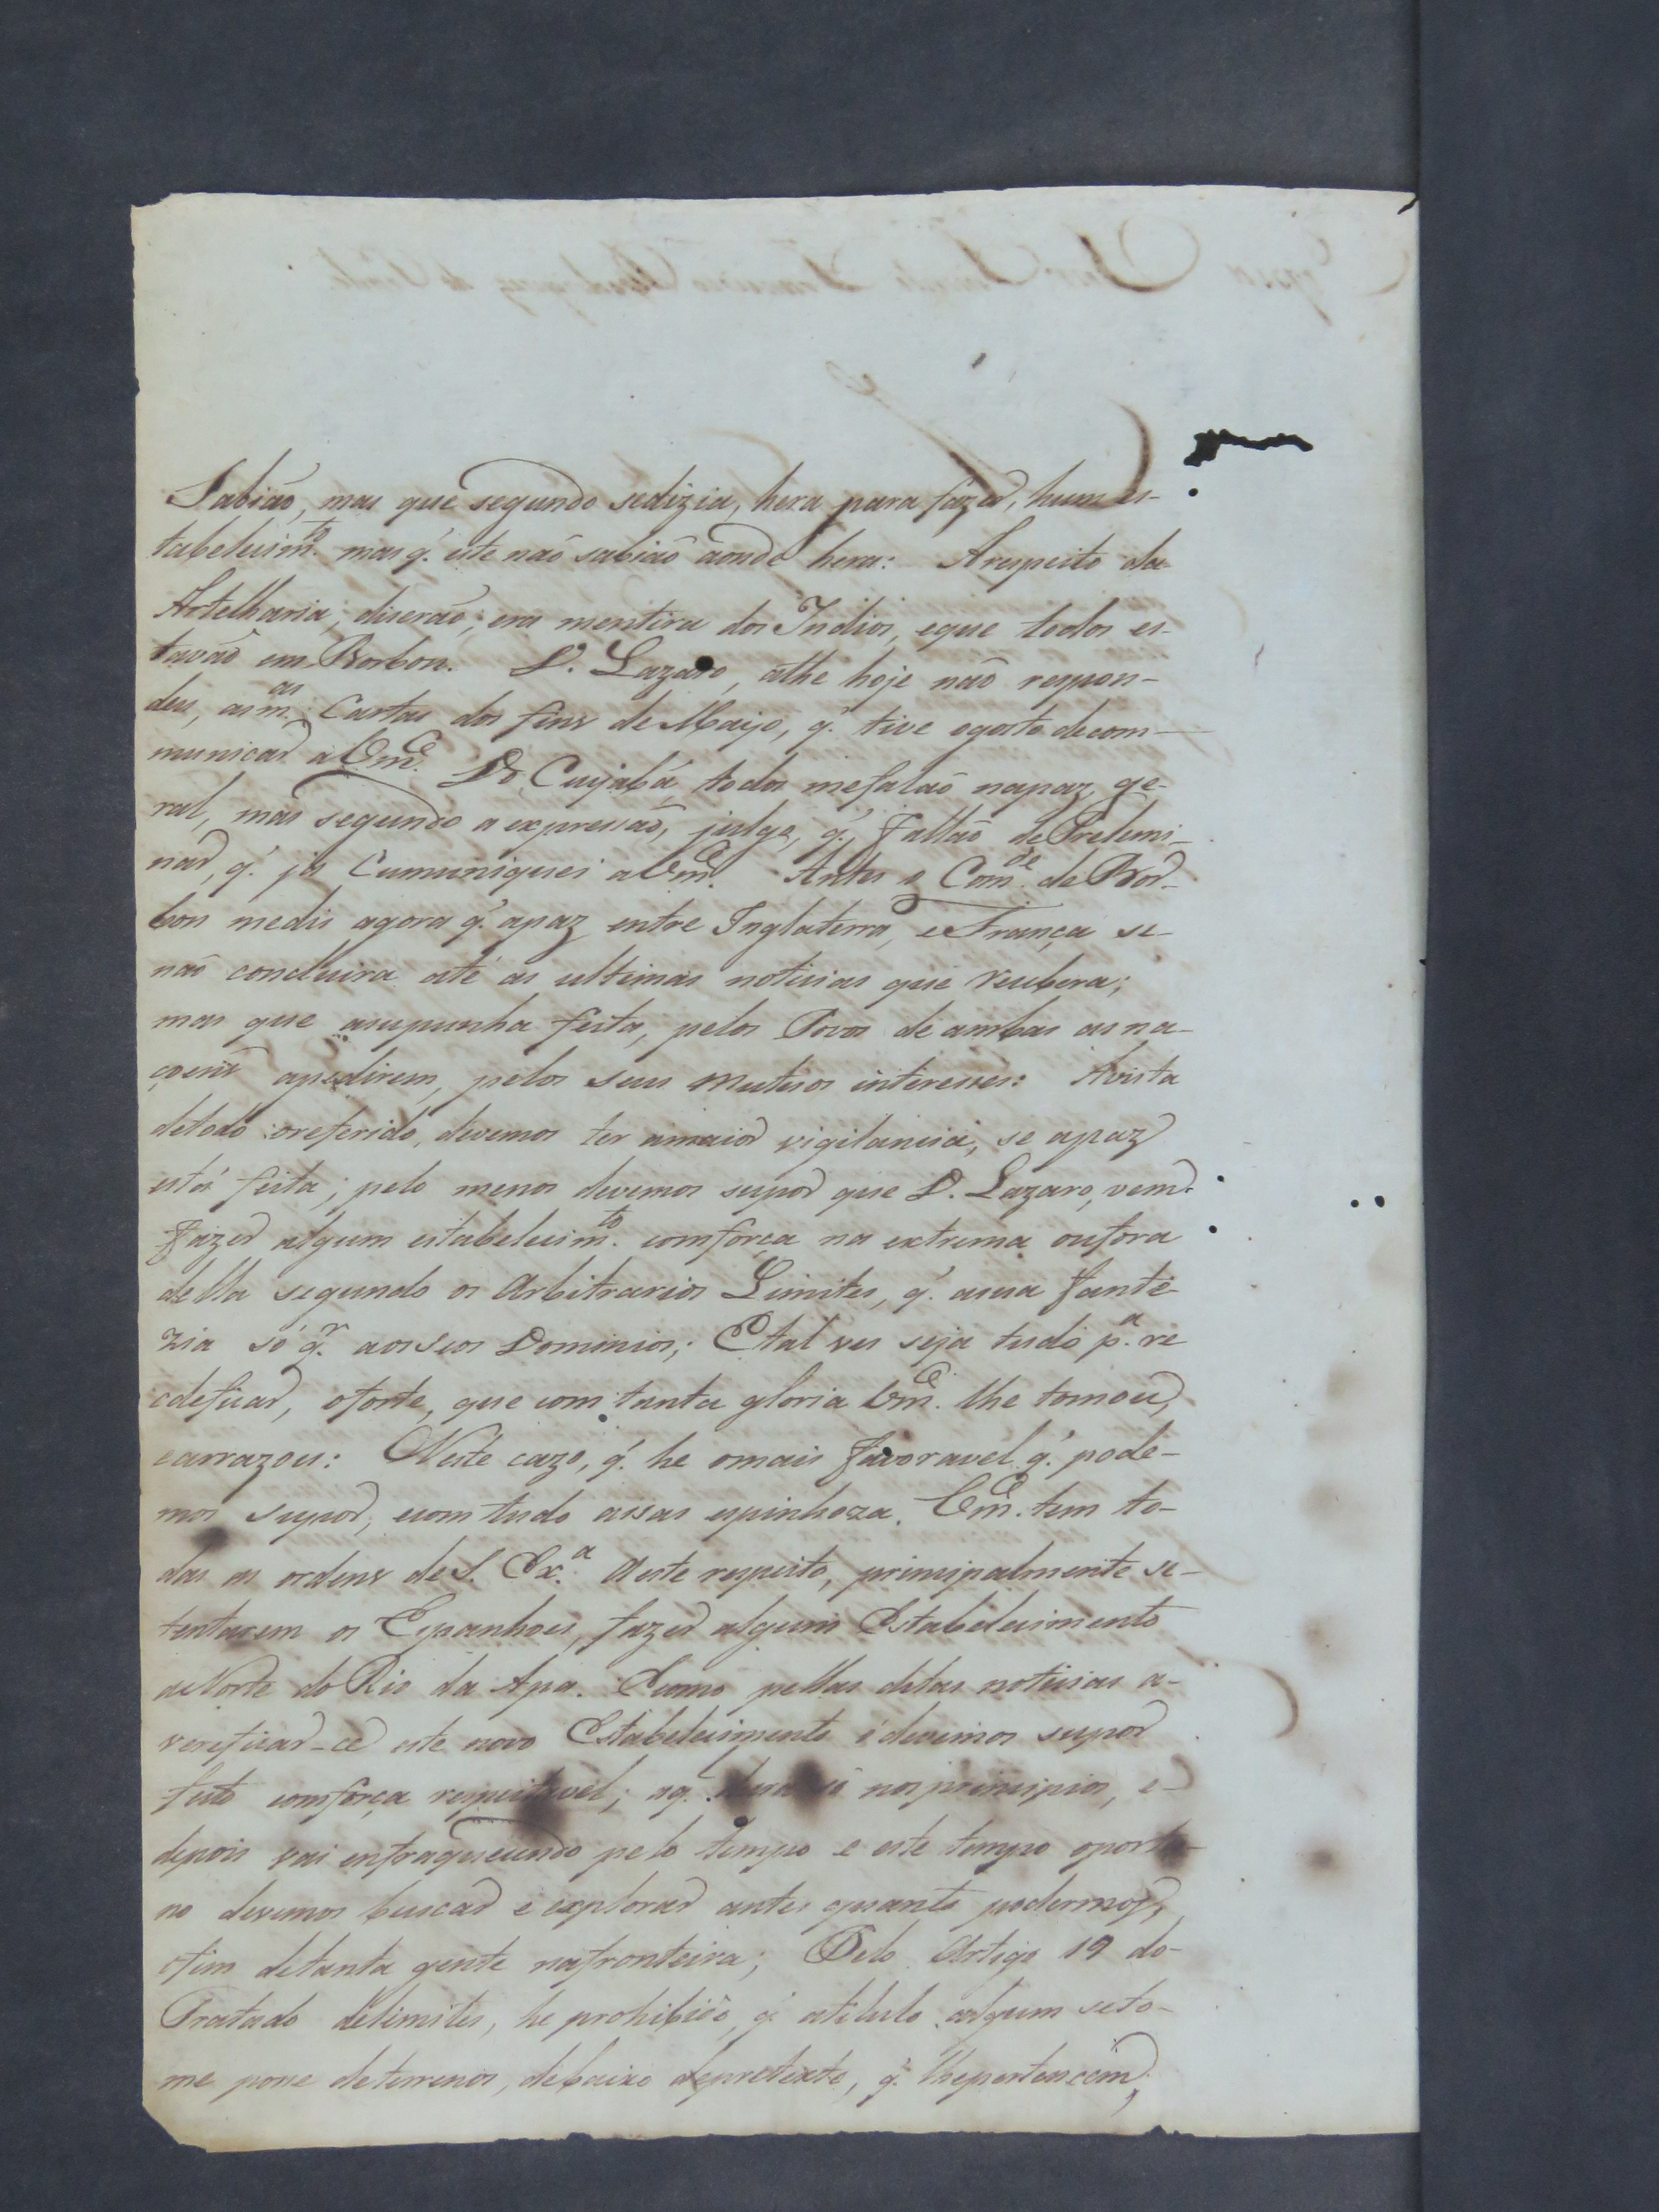 Sabião, mas que segundo sedizia, hera para fazer, hum es-
tabelecim.to mas q.' este naõ sabiaõ aonde hera: Arespeito da
Artelharia, diseraõ, era mentira dos Indios, eque todos es-
tavaõ em Borbon. D. Lazaro, athe hoje não respon-
deu, asm.as Cartas dos fins de Maijo, q.' tive ogosto decom-
municar a Vm.ce Do Cuyabá todos mefalaõ napaz ge-
ral, mas segundo a expressaõ, julgo, q.' fallaõ de Prelimi-
nar, q.' ja Cumuniquei a Vm.ce Antes o Com.de de Bor-
bon medis agora q.' apaz entre Inglaterra, e França se
naõ concluira até as ultimas noticias que recebera;
mas que asupunha feita, pelos Povos de ambas as na-
çoens apedirem, pelos seus mutuos interesses: Avista
detodo oreferido, devemos ter amaior vigilancia, se apaz
está feita; pelo menos devemos supor que D. Lazaro, vem
fazer algum estabelecim.to comforça na extrema oufora
della segundo os Arbitrarios Limites, q.' asua fante-
zia só q.r aosseos Dominios; Etal ves seja tudo p.a re
edeficar, oforte, que com tanta gloria Vm.ce lhe tomou,
earrazou: Neste cazo, q.' he omais favoravel q.' pode-
mos supor, ecom tudo assas espinhoza. Vm.ce tem to-
das as ordens de S. Ex.a Aeste respeito, principalmente se-
tentarem os Espanhoes, fazer algum Estabelecimento
aoNorte do Rio da Apa. Ecomo pellas ditas noticias a-
vereficar-ce este novo Estabelecimento é devemos supor
feito comforça respeitavel; aq. nos principios, e
depois vai enfraquecendo pelo tempo e este tempo oportu-
no devemos buscar e explorar antes quanto podermos,
ofim detanta gente nafronteira; Pelo Artigo 19 do-
Tratado delimites, he prohibido, q.' atitulo algum seto-
me posse deterrenos, debaixo depretexto, q.' lhepertencem,